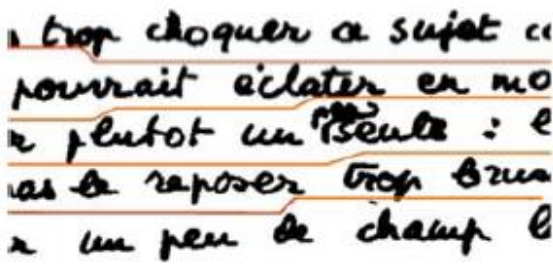 trop choquer a sujet
pourrait éclater en mo
plutot un seule : l
as le reposer trop brus
un peu de champ